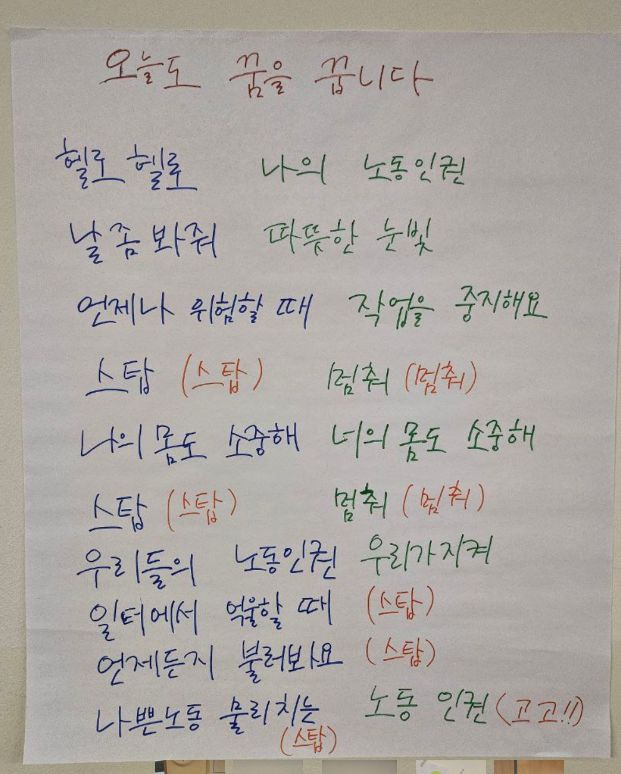 오늘도 꿈을 꿉니다
헬로 헬로 나의 노동인권
날 좀 봐줘 따뜻한 눈빛
언제나 위험할 때 작업을 중지해요
스탑 (스탑) 멈춰 (멈춰)
나의 몸도 소중해 너의 몸도 소중해
스탑 (스탑) 멈춰 (멈춰)
우리들의 노동인권 우리가지켜
일터에서 억울할 때 (스탑)
언제든지 불러봐요 (스탑)
나쁜노동 물리치는 노동 인권 (고고!!)
(스탑)